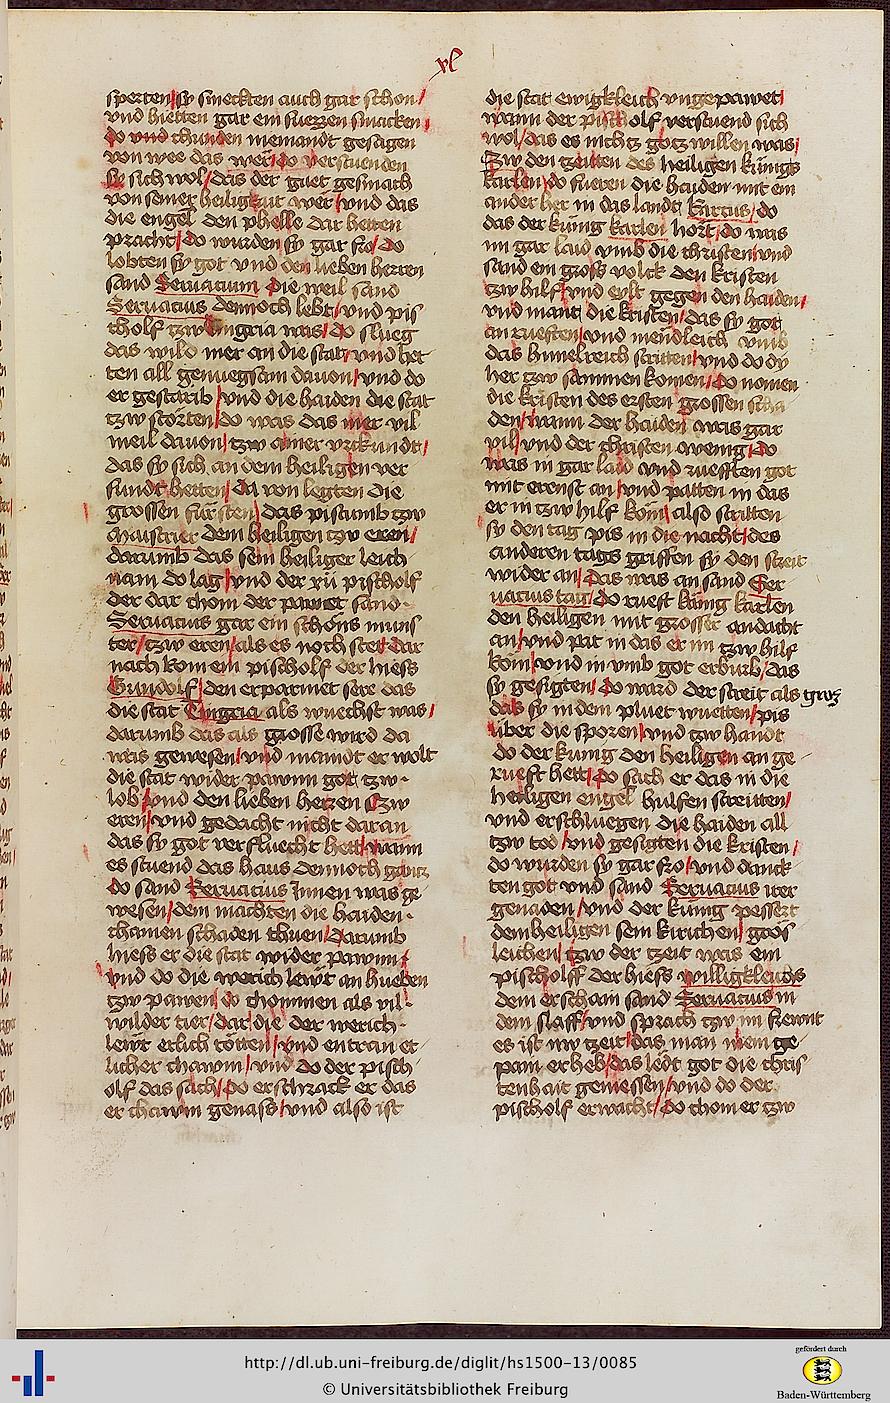 xl
sperten / sy smeckten auch gar schon /
vnd hietten gar ein suezzen smacken /
do vnd chunden niemandt gesagen
von wee das wer / do verstuenden
sy sich wol / das der guet gesmach
von seiner heiligkait wer / vnd das
die engel den phelle dar hetten
pracht / Do wurden sy gar fro / Do
lobten sy got vnd den lieben herren
sand Seruacium Die weil sand
Seruacius dennoch lebt / vnd pis
cholf tzw Tungria was / do slueg
das wild mer an die stat / vnd het
ten all genuegsam dauon / vnd do
er gestarib / vnd die haiden die stat
tzw storten / do was das mer vil
meil dauon / tzw ainer vrkundt /
das sy sich an dem heiligen ver
sundt hetten / da von legten die
grossen fursten / das pistumb tzw
Mastrier dem heiligen tzw eren /
darumb das sein heiliger leich
nam do lag / vnd der xii pischolf
der dar chom der pawet sand
Seruacius gar ein schons muns
ter / tzw eren / als es noch stet dar
nach kom ein pischolf der hiess
Gundolf / den erparmet sere das
die stat Tungria als wuechst was /
darumb das als grosse wird da
was gewesen / vnd maindt er wolt
die stat wider pawnn got tzw
lob / vnd den lieben herren tzw
eren / vnd gedacht nicht daran
das sy got verfluecht hett / wann
es stuend das haus dennoch gantz
do sand Seruacius Innen was ge
wesen / dem machten die haiden
chainen schaden thuen / Darumb
hiess er die stat wider pawnn /
vnd do die werich lewt an hueben
tzw pawen / do chommen als vil
wilder tier / dar / die der werich
lewt erlich totten / vnd entran et
licher chawm / vnd do der pisch
olf das sach / Do erschrack er das
er chawm genass / vnd also ist
die stat ewigkleich vngepawet /
wann der pischolf verstuend sich
wol / das es nicht gotz willen was /
Tzw den tzeitten des heiligen kunigs
karlen / do fueren die haiden mit ein
ander her in das landt karcus / do
das der kunig karlen hort / do was
im gar laid vmb die christen / vnd
sand ein gross volck den kristen
tzw hilf / vnd eylt gegen den haiden /
vnd mant die kristen / das sy got
an ruefften / vnd mendleich vmb
das himelreich stritten / vnd do dy
her tzw sammen komen / do nomen
die kristen des ersten grossen scha
den / wann der haiden was gar
vil / vnd der christen wenig / do
was in gar laid vnd ruefften got
mit ernst an / vnd patten in das
er in tzw hilf kom / also stritten
sy den tag pis in die nacht / des
anderen tags griffen sy den streit
wider an / Das was an sand Ser
uacius tag / do rueft kunig karlen
den heiligen mit grosser andacht
an / vnd pat in das er im tzw hilf
kom / vnd in vmb got erburb / das
sy gesigten / Do ward der streit als gros
das sy in dem pluet wuetten / pis
uber die sporen / vnd tzw handt
do der kunig den heiligen an ge
rueft hett / Do sach er das in die
heiligen engel hulfen streitten /
vnd erschluegen die haiden all
tzw tod / vnd gesigten die kristen /
do wurden sy gar fro / vnd danck
ten got vnd sand Seruacius irer
genaden / vnd der kunig pessert
dem heiligen sein kirichen / gros
leichen / tzw der tzeit was ein
pischolff der hiess willigkleudis
dem erscham sand Seruacius in
dem slaff / vnd sprach tzw im frewnt
es ist nw tzeit / das man mein ge
pain erheb / das ledt got die chris
tenhait geniessen / vnd do der
pischolf erwacht / Do chom er tzw
http://dl.ub.uni-freiburg.de/diglit/hs1500-13/0085
© Universitätsbibliothek Freiburg
gefördert durch
Baden-Württemberg